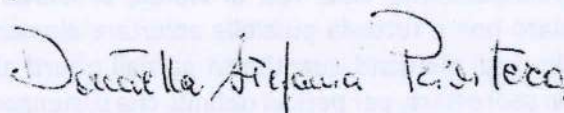 Donatella Stefania Privitera